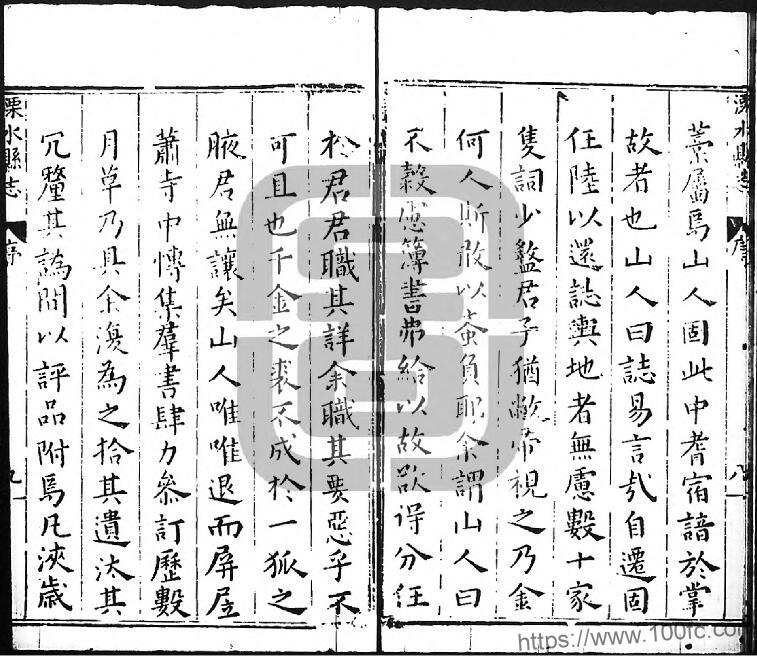 溧水縣志
序
八
藁屬焉山人固此中耆宿諳於掌
故者也山人曰誌易言哉自遷固
任陸以還誌輿地者無慮數十家
隻詞少盭君子猶敝帚視之乃金
何人斯敢以蚉負耶余謂山人曰
不穀慮簿書弗給以故欲得分任
於君君職其詳余職其要惡乎不
可且也千金之裘不成於一狐之
腋君無讓矣山人唯唯退而屏居
蕭寺中愽集羣書肆力叅訂歷數
月草乃具余復為之拾其遺汰其
冗釐其譌間以評品附焉凡浹歲
溧水縣志
序
九
https://www.100fc.com